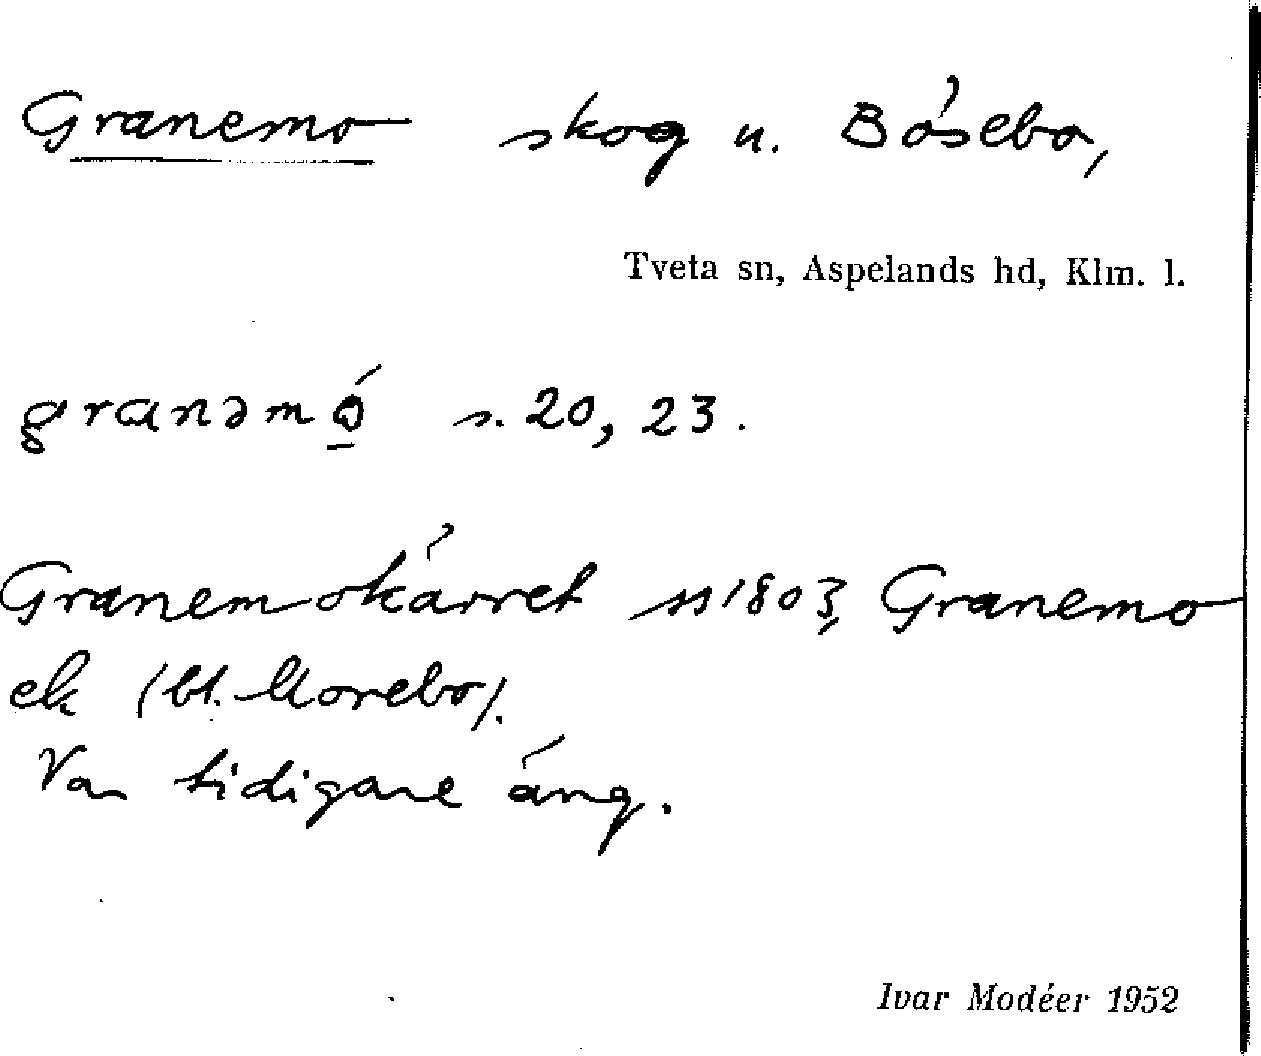 Granemo skog u. Bösebo,
Tveta sn, Aspelands hd, Klm. l.
granəmó̱ s. 20, 23.
Granemokärret ss 1803, Granemo
ek (bl. Morebo).
Var tidigare äng.
Ivar Modéer 1952